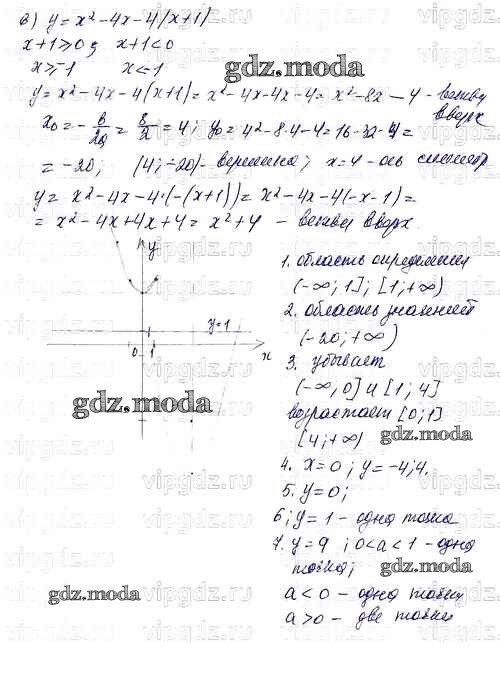 в) y = x² - 4x - 4|x+1|
x+1≥0, x+1<0
x≥-1 x<-1
gdz.moda
y = x² - 4x - 4(x+1) = x² - 4x - 4x - 4 = x² - 8x - 4 - ветви вверх
x₀ = -в/2a = 8/2 = 4; y₀ = 4² - 8·4 - 4 = 16 - 32 - 4 =
= -20; (4; -20) - вершина; x=4 - ось симметр
y = x² - 4x - 4·(-(x+1)) = x² - 4x - 4(-x-1) =
= x² - 4x + 4x + 4 = x² + 4 - ветви вверх.
y
y=1
0 1
x
gdz.moda
1. область определения
(-∞; 1]; [1; +∞)
2. область значений
(-20; +∞)
3. убывает
(-∞, 0] и [1; 4]
возрастает [0; 1]
[4; +∞)
gdz.moda
4. x=0; y=-4; 4.
5. y=0;
6; y=1 - одна точка
7. y=9; 0<a<1 - одна
точка;
gdz.moda
a<0 - одна точка
a>0 - две точки
gdz.moda
vipgdz.ru